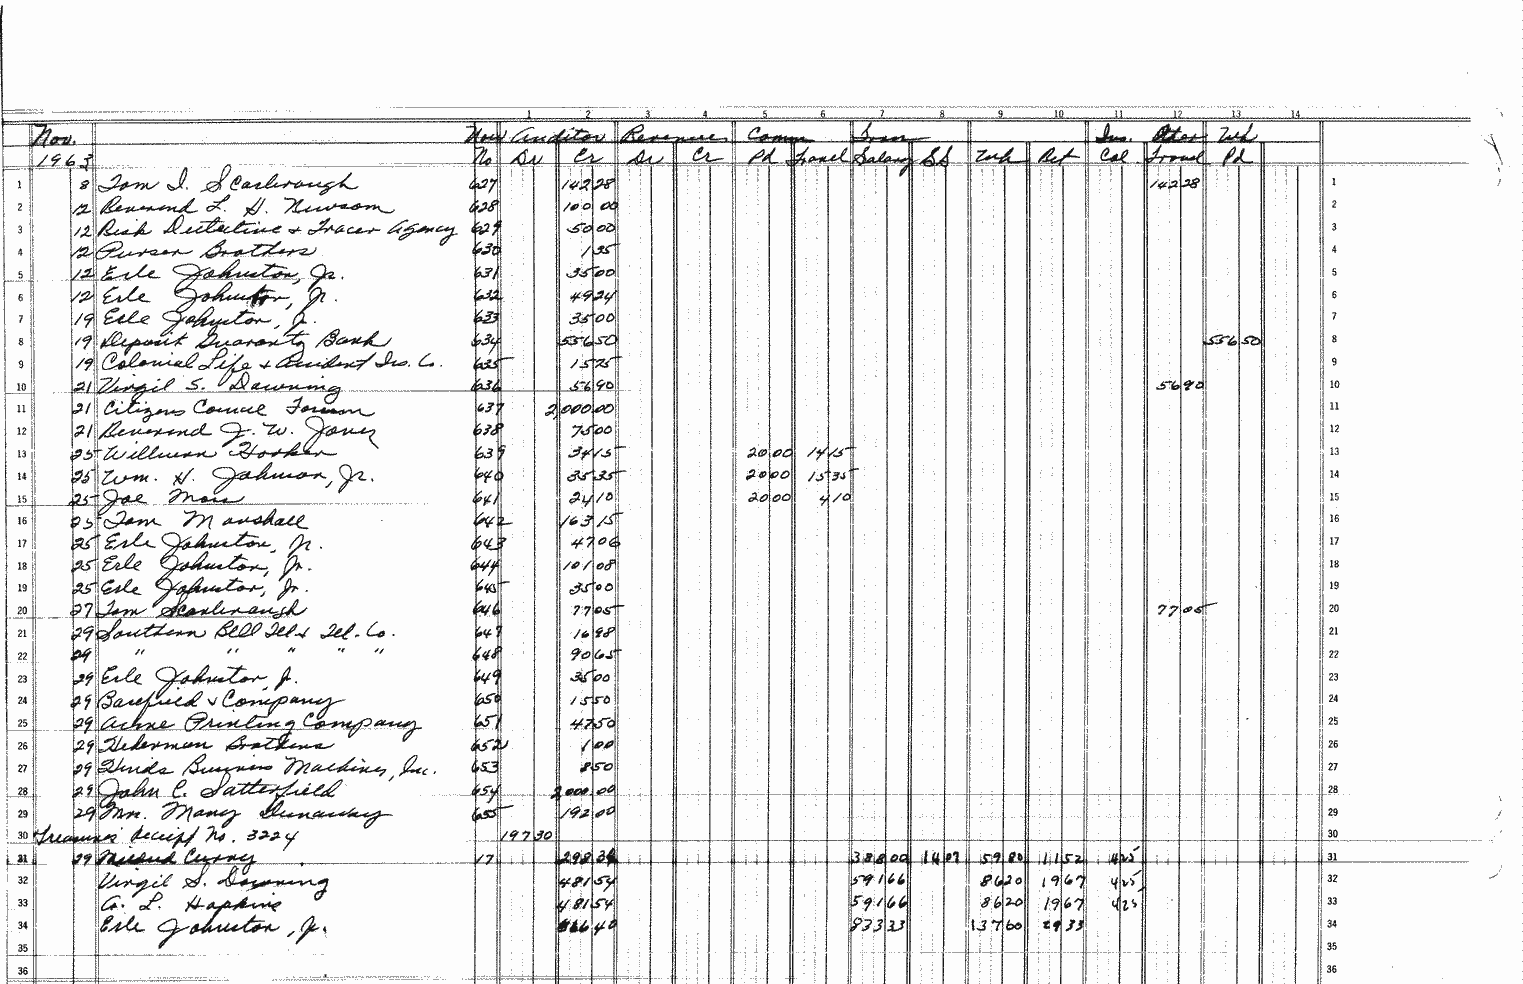 1 2 3 4 5 6 7 8 9 10 11 12 13 14
Nov. Auditor Revenue Comm Ins. Other Wh
1963 No Dr Cr Dr Cr Pd Travel Salary SS Wh Ret Col Travel Pd
1 8 Tom I. Scarbrough 627 142 28 142 28 1
2 12 Reverend L. H. Newsom 628 100 00 2
3 12 Risk Detective & Tracer Agency 629 50 00 3
4 12 Purser Brothers 630 1 35 4
5 12 Erle Johnston, Jr. 631 35 00 5
6 12 Erle Johnston, Jr. 632 49 24 6
7 19 Erle Johnston, Jr. 633 35 00 7
8 19 Deposit Guaranty Bank 634 556 50 556 50 8
9 19 Colonial Life & Accident Ins. Co. 635 15 75 9
10 21 Virgil S. Downing 636 56 90 56 90 10
11 21 Citizens Council Forum 637 2,000 00 11
12 21 Reverend J. W. Jones 638 75 00 12
13 25 Hooker 639 34 15 20 00 14 15 13
14 25 Wm. H. Johnson, Jr. 640 35 35 20 00 15 35 14
15 25 Joe 641 24 10 20 00 4 10 15
16 25 Tom Marshall 642 163 15 16
17 25 Erle Johnston, Jr. 643 47 06 17
18 25 Erle Johnston, Jr. 644 101 08 18
19 25 Erle Johnston, Jr. 645 35 00 19
20 27 Tom Scarbrough 646 77 05 77 05 20
21 29 Southern Bell Tel & Tel. Co. 647 16 98 21
22 29 " " " " " 648 90 65 22
23 29 Erle Johnston, Jr. 649 35 00 23
24 29 Barefield & Company 650 15 50 24
25 29 Acme Printing Company 651 47 50 25
26 29 Hederman Brothers 652 1 00 26
27 29 Hinds Business Machines, Inc. 653 8 50 27
28 29 John C. Satterfield 654 2 000 00 28
29 29 Mrs. Mary Dunaway 655 192 00 29
30 Treasurer's Receipt No. 3224 197 30 30
31 29 Curry 17 298 36 388 00 14 07 59 80 11 52 4 25 31
32 Virgil S. Downing 481 54 591 66 86 20 19 67 4 25 32
33 A. L. Hopkins 481 54 591 66 86 20 19 67 4 25 33
34 Erle Johnston, Jr. 666 40 833 33 137 60 29 33 34
35 35
36 36